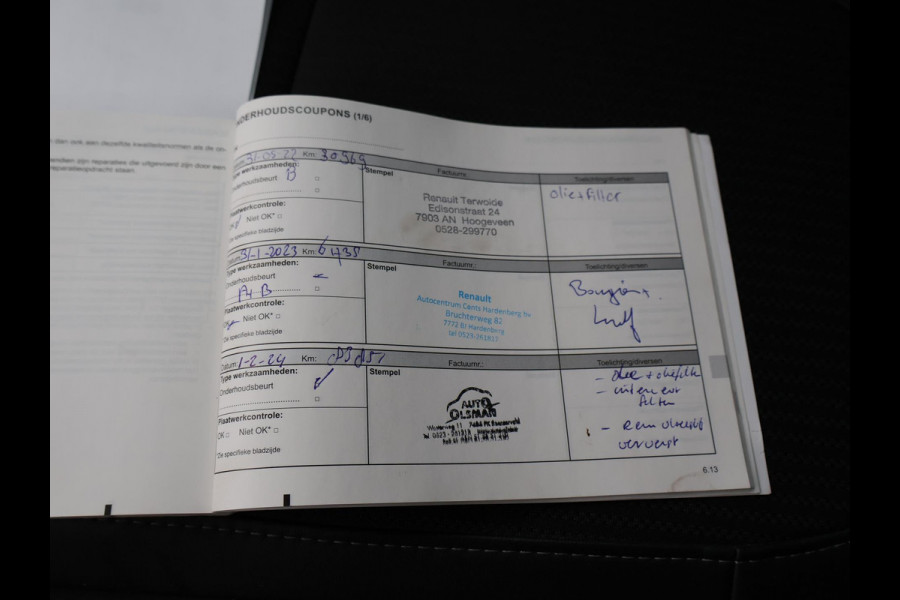 den ook aan dezelfde kwaliteitsnormen als de
reparaties die uitgevoerd zijn door een
reparatieopdracht staan.
NDERHOUDSCOUPONS (1/6)
Datum 31-05-22 Km: 30569
Type werkzaamheden:
Onderhoudsbeurt B
Plaatwerkcontrole:
OK Niet OK*
*Zie specifieke bladzijde
Stempel Factuurnr.:
Renault Terwolde
Edisonstraat 24
7903 AN Hoogeveen
0528-299770
Toelichting/diversen
olie+filter
Datum 31-1-2023 Km:
Type werkzaamheden:
Onderhoudsbeurt
A+B
Plaatwerkcontrole:
OK Niet OK*
*Zie specifieke bladzijde
Stempel Factuurnr.:
Renault
Autocentrum Canis Hardenberg bv
Bruchterweg 82
7772 BJ Hardenberg
tel 0523-261817
Toelichting/diversen
Bougies+
Datum 1-2-24 Km:
Type werkzaamheden:
Onderhoudsbeurt
Plaatwerkcontrole:
OK Niet OK*
*Zie specifieke bladzijde
Stempel Factuurnr.:
AUTO
OLSMAN
Toelichting/diversen
- olie + oliefilter
- interieur
filter
- Remvloeistof
ververst
6.13